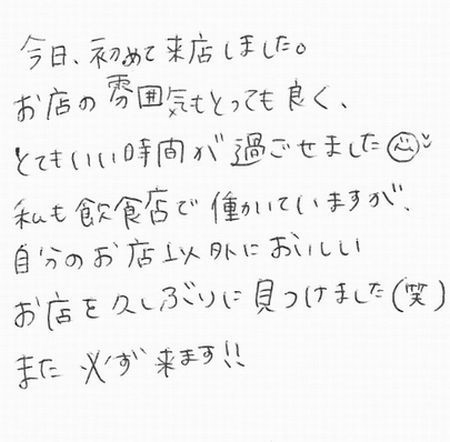 今日、初めて来店しました。
お店の雰囲気もとっても良く、
とてもいい時間が過ごせました
私も飲食店で働いていますが、
自分のお店以外においしい
お店を久しぶりに見つけました(笑)
また必ず来ます!!